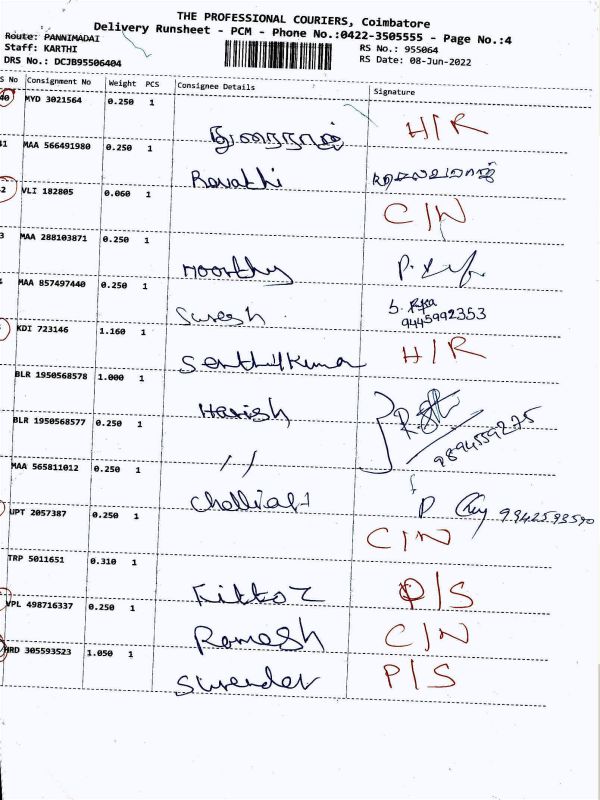 THE PROFESSIONAL COURIERS, Coimbatore
Delivery Runsheet - PCM - Phone No.:0422-3505555 - Page No.:4
Route: PANNIMADAI
Staff: KARTHI
DRS No.: DCJB95506404
RS No.: 955064
RS Date: 08-Jun-2022
S No Consignment No Weight PCS Consignee Details Signature
40 MYD 3021564 0.250 1 H/R
41 MAA 566491980 0.250 1 Revathi
2 VLI 182805 0.060 1 C/N
3 MAA 288103871 0.250 1 Moorthy
MAA 857497440 0.250 1 Suresh 9445992353
KDI 723146 1.160 1 Senthilkumar H/R
BLR 1950568578 1.000 1 Harish
BLR 1950568577 0.250 1 // 9894559275
MAA 565811012 0.250 1 9942593590
UPT 2057387 0.250 1 C/N
TRP 5011651 0.310 1 P/S
VPL 498716337 0.250 1 Ramesh C/N
HRD 305593523 1.050 1 Surender P/S